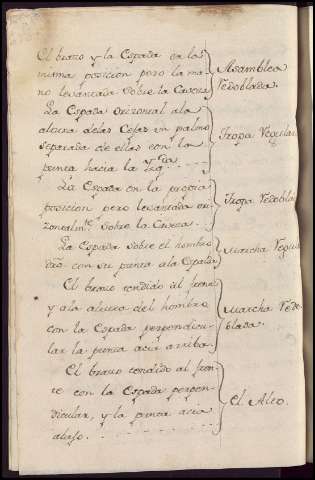 El brazo y la Espada en la
misma posicion pero la ma
no levantada sobre la Caveza
Asamblea
Redoblada.
La Espada orizontal ala
altura delas Cejas un palmo
separada de ellas con la
punta hacia la Yzq.da
Tropa Regular
La Espada en la propia
posicion pero levantada ori
zontalm.te sobre la Caveza.
Tropa Redobla
La Espada sobre el hombro
dro con su punta ala Espalda
Marcha Regu
El brazo tendido al frente
y ala altura del hombro
con la Espada perpendicu-
lar la punta acia arriba.
Marcha Redo-
blada.
El brazo tendido al fren-
te con la Espada perpen-
dicular, y la punta acia
abajo.
El Alto.